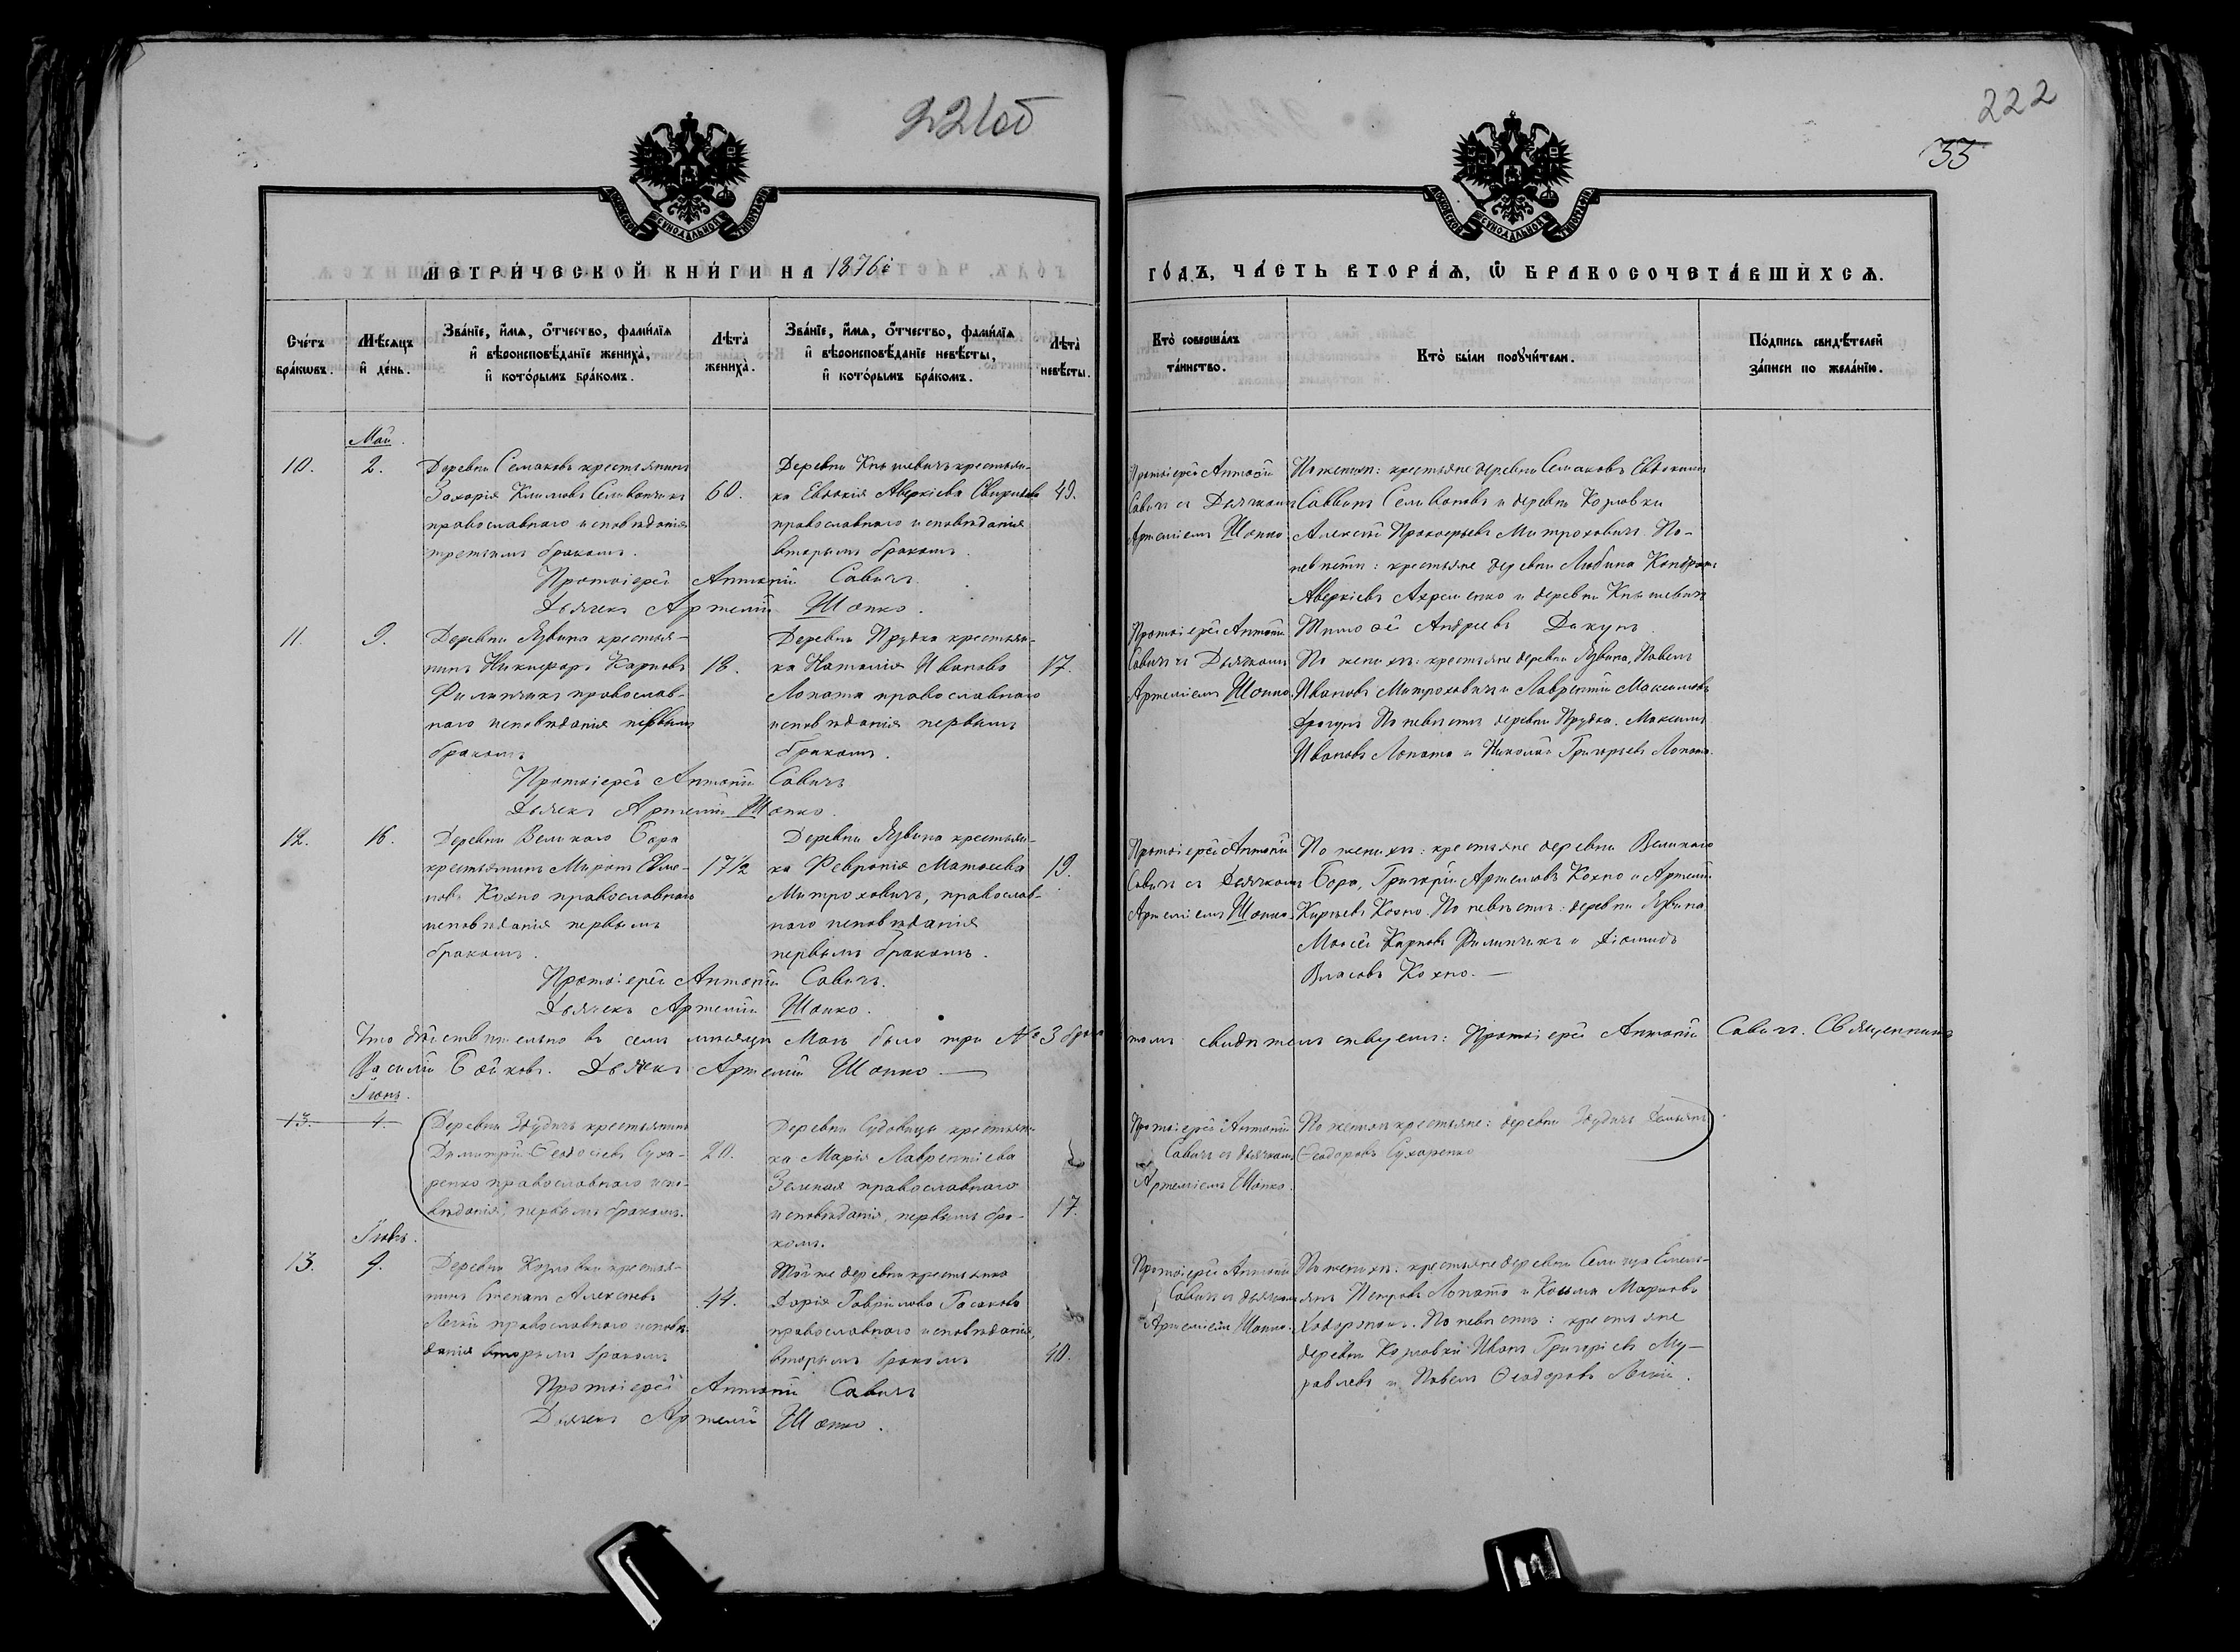 221об
222
33
МЕТРИ́ЧЕСКОЙ КНИ́ГИ НА 1876й
ГО́ДЪ, ЧА́СТЬ ВТОРА́Я, Ѿ БРАКОСОЧЕТА́ВШИХСЯ.
Сче́тъ бра́кωвъ.
Мѣ́сяцъ и҆ де́нь.
Зва́нїе, и҆́мя, о҆́тчество, фами́лїя
и҆ вѣроисповѣ́данїе жениха̀,
и҆ кото́рымъ бра́комъ.
Лѣта̀ жениха̀.
Зва́нїе, и҆́мя, о҆́тчество, фами́лїя
и҆ вѣроисповѣ́данїе невѣ́сты,
и҆ кото́рымъ бра́комъ.
Лѣта̀ невѣ́сты.
Кто̀ соверша́лъ та́инство.
Кто̀ бы́ли поручи́тели.
По́дпись свидѣ́телей
за́писи по жела́нїю.
Май.
10. 2.
Деревни Семаковъ крестьянинъ
Захарія Климовъ Селиванчикъ
православнаго исповѣданія
третьимъ бракомъ.
60.
Деревни Кнышевичъ крестьян-
ка Евдокія Аверкіева
православнаго исповѣданія
вторымъ бракомъ.
49.
Протоіерей Антоній
Савичъ съ Дьячкомъ
Артеміемъ Шопко.
По женихѣ: крестьяне деревни Семаковъ Евдокимъ
Саввинъ Селивановъ и деревни Козловки
Алексѣй Прокофьевъ Митроховичъ. По-
невѣстѣ: крестьяне деревни Любина Кондратъ
Аверкіевъ Ахременко и деревни Кнышевичъ
Тимоѳей Андреевъ Дакунъ.
Протоіерей Антоній Савичъ.
Дьячекъ Артемій Шопко.
11. 9.
Деревни Язвина крестья-
нинъ Никифоръ Карповъ
Филипчикъ православ-
наго исповѣданія первымъ
бракомъ.
18.
Деревни Прудка крестьян-
ка Наталія Иванова
Лопата православнаго
исповѣданія первымъ
бракомъ.
17.
Протоіерей Антоній
Савичъ съ Дьячкомъ
Артеміемъ Шопко.
По женихѣ: крестьяне деревни Язвина, Павелъ
Ивановъ Митроховичъ и Лаврентій Максимовъ
Драгунъ По невѣстѣ деревни Прудка. Максимъ
Ивановъ Лопата и Николай Григорьевъ Лопата.
Протоіерей Антоній Савичъ
Дьячекъ Артемій Шопко.
12. 16.
Деревни Великаго Бора
крестьянинъ Миронъ
Кохно православнаго
исповѣданія первымъ
бракомъ.
17½
Деревни Язвина крестьян-
ка Февронія Матѳеева
Митроховичъ, православ-
наго исповѣданія
первымъ бракомъ.
19.
Протоіерей Антоній
Савичъ съ Дьячкомъ
Артеміемъ Шопко.
По женихѣ: крестьяне деревни Великаго
Бора, Григорій Артемовъ Кохно и Артемій
Кохно. По невѣстѣ: деревни Язвина
Моисей Карповъ Филипчикъ и Діомидъ
Власовъ Кохно. —
Протоіерей Антоній Савичъ.
Дьячекъ Артемій Шопко.
Что дѣйствительно въ семъ мѣсяцѣ Маѣ было три № 3 брака томъ свидѣтельствуемъ: Протоіерей Антоній Савичъ. Священникъ
Василій Бойковъ. Дьячекъ Артемій Шопко. —
Іюнь.
13. 4.
Деревни Здудичъ крестьянинъ
Димитрій Ѳеодосіевъ Суха-
ренко православнаго испо-
вѣданія, первымъ бракомъ.
20.
Деревни Судовицы крестьян-
ка Марія Лаврентіева
Зеленая православнаго
исповѣданія, первымъ бра-
комъ.
17.
Протоіерей Антоній
Савичъ съ дьячкомъ
Артеміемъ Шопко.
По женихѣ крестьяне: деревни Здудичъ Демьянъ
Ѳеодоровъ Сухаренко
Іюль.
13. 9.
Деревни Козловки крестья-
нинъ Степанъ Алексѣевъ
Легкій православнаго исповѣ-
данія вторымъ бракомъ
44.
Той же деревни крестьянка
Дарія Гаврилова Гасакова
православнаго исповѣданія,
вторымъ бракомъ
40.
Протоіерей Антоній
Савичъ съ дьячкомъ
Артеміемъ Шопко.
По женихѣ: крестьяне деревни Селища Емель-
янъ Петровъ Лопата и Косьма Марковъ
Ходорчонъ. По невѣстѣ: крестьяне
деревни Козловки Иванъ Григорьевъ Му-
равлевъ и Павелъ Ѳеодоровъ Легкій.
Протоіерей Антоній Савичъ
Дьячекъ Артемій Шопко.